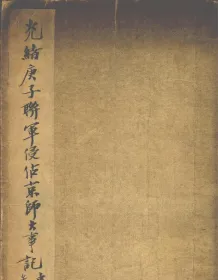 光緒庚子聯軍侵佔京師大事記